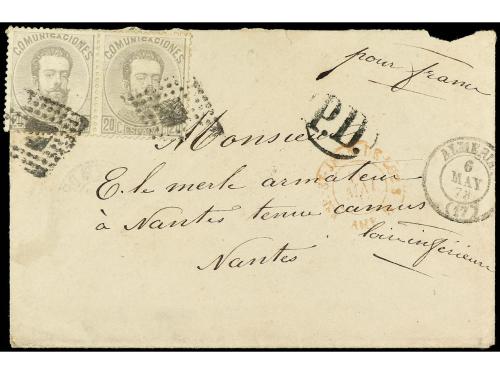 COMUNICACIONES COMUNICACIONES
20 C ESPAÑA 20
pour france
P.D.
ALMERIA
6
MAY
73
(17)
Monsieur
E. le merle armateur
à Nantes tenu camus
loire inférieure
Nantes